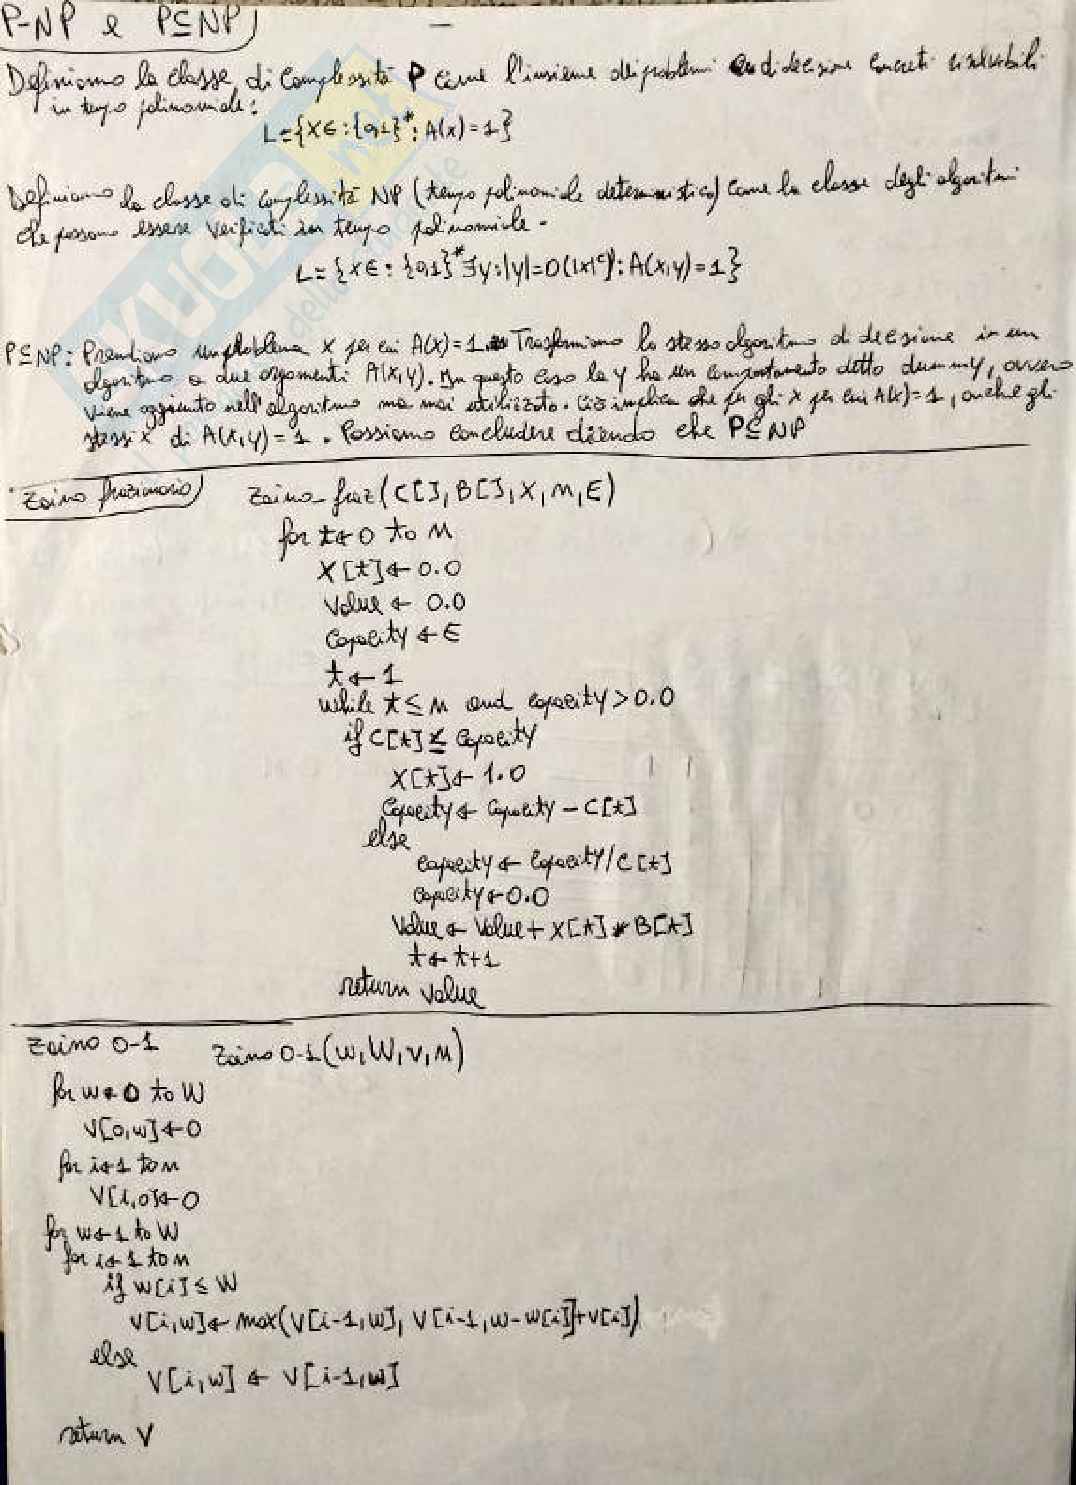 P-NP e P⊆NP
Definiamo la classe di complessità P come l'insieme dei problemi di decisione concreti risolvibili
in tempo polinomiale:
L={X∈:{0,1}*: A(x)=1}
Definiamo la classe di complessità NP (tempo polinomiale deterministico) come la classe degli algoritmi
che possono essere verificati in tempo polinomiale.
L={X∈: {0,1}*∃y:|y|=O(|x|ᶜ): A(x,y)=1}
P⊆NP: Prendiamo un problema X per cui A(x)=1. Trasformiamo lo stesso algoritmo di decisione in un
algoritmo a due argomenti A(x,y). In questo caso la y ha un comportamento detto dummy, ovvero
viene aggiunto nell'algoritmo ma mai utilizzato. Ciò implica che per gli x per cui A(x)=1, anche gli
stessi x di A(x,y)=1. Possiamo concludere dicendo che P⊆NP
Zaino frazionario
Zaino-fraz(C[],B[],X,n,E)
for t←0 to n
X[t]←0.0
Value ← 0.0
Capacity ← E
t←1
while t≤n and capacity>0.0
if C[t]≤ Capacity
X[t]←1.0
Capacity ← Capacity - C[t]
else
capacity ← Capacity/C[t]
capacity←0.0
Value ← Value + X[t] * B[t]
t← t+1
return value
Zaino 0-1
Zaino 0-1(w,W,v,n)
for w←0 to W
V[0,w]←0
for i←1 to n
V[i,0]←0
for w←1 to W
for i←1 to n
if w[i]≤W
V[i,w]← max(V[i-1,w], V[i-1,w-w[i]]+v[i])
else
V[i,w] ← V[i-1,w]
return V
SKUOLA